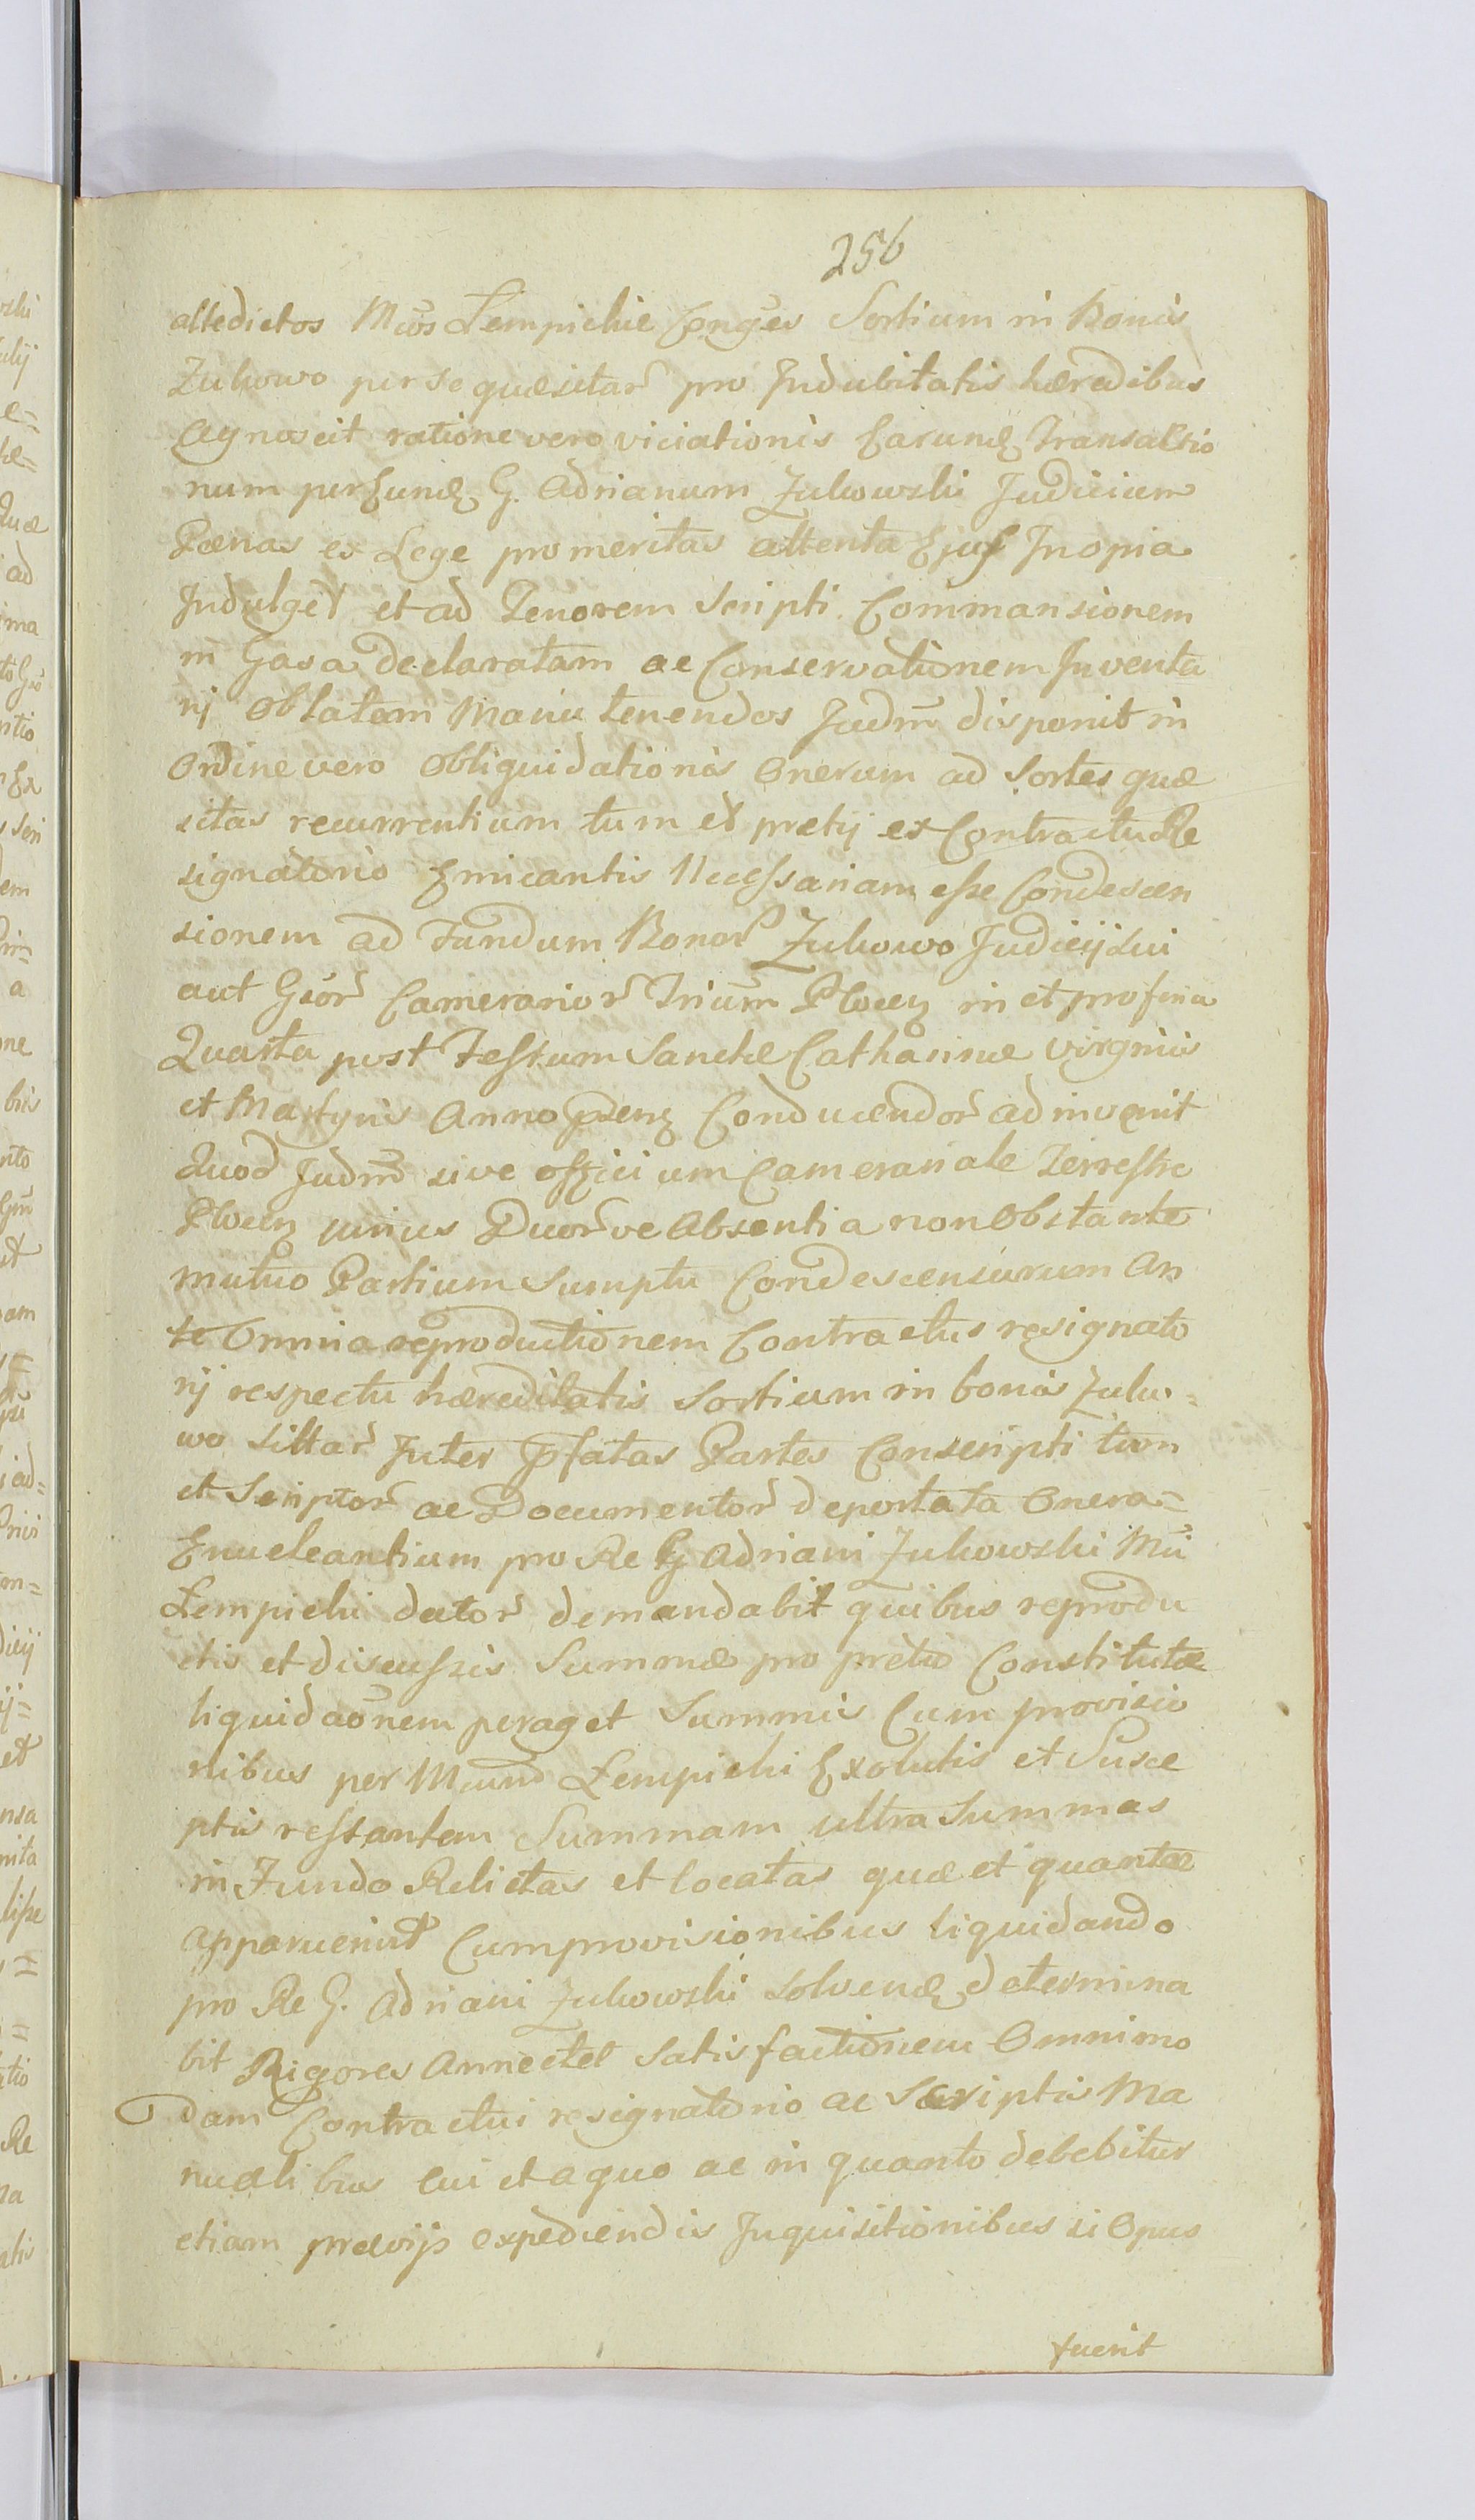 256
attedictos Mcōs Łempickie Conges Sortium in Bonis
Zukowo per se quæsitar pro Indubitatis hæredibus
Agnoscit ratione vero viciationis Earund Transactio
num per Eund G. Adrianum Zukowski Judicium
Pœnas ex Lege promeritas attenta Ejus Inopia
Indulget et ad Tenorem Scripti Commansionem
in Casa declaratam ac Conservationem Inventa
rij Oblatam Manu tenendos Judm̄ disponit in
Ordine vero Obliquidationis Onerum ad Sortes quæ
sitas recurrentium tum et pretij ex Contractu Re
signatorio Emicantis Necessariam esse Condescen
sionem ad Fundum Bonor Zukowo Judicij Sui
aut Gūor Camerarior Trium Plocen in et pro feria
Quarta post Festum Sanctæ Catharinæ Virginis
et Martyris Anno p̄sen Conducendor adinvenit
Quod Judm̄ sive officium Cameranale Terrestre
Plocen unius Duorve Absentia non Obstante
mutuo Partium Sumptu Condescensurum An
te Omnia reproductionem Contractus resignato
rij respectu hæreditatis Sortium in bonis Zuko=
wo Sittar Inter p̄fatas Partes Conscripti tum
et Scriptor ac Documentor deportata Onera=
Enucleantium pro Re G Adriani Zukowski Mci
Łempicki dator demandabit quibus reprodu
ctis et discussis Summæ pro pretio Constitutæ
liquidaōnem peraget Summis Cum provisio
nibus per Mcum Łempicki Exolutis et Susce
ptis restantem Summam ultra Summas
in Fundo Relictas et locatas quæ et quantæ
apparuerint Cum provisionibus liquidando
pro Re G. Adriani Zukowski Solvend determina
bit Rigores Annectet Satisfactionem Omnimo
dam Contractui resignatorio ac Scriptis Ma
nualibus cui et a quo ac in quanto debebitur
etiam prævijs expediendis Inquisitionibus si Opus
fuerit